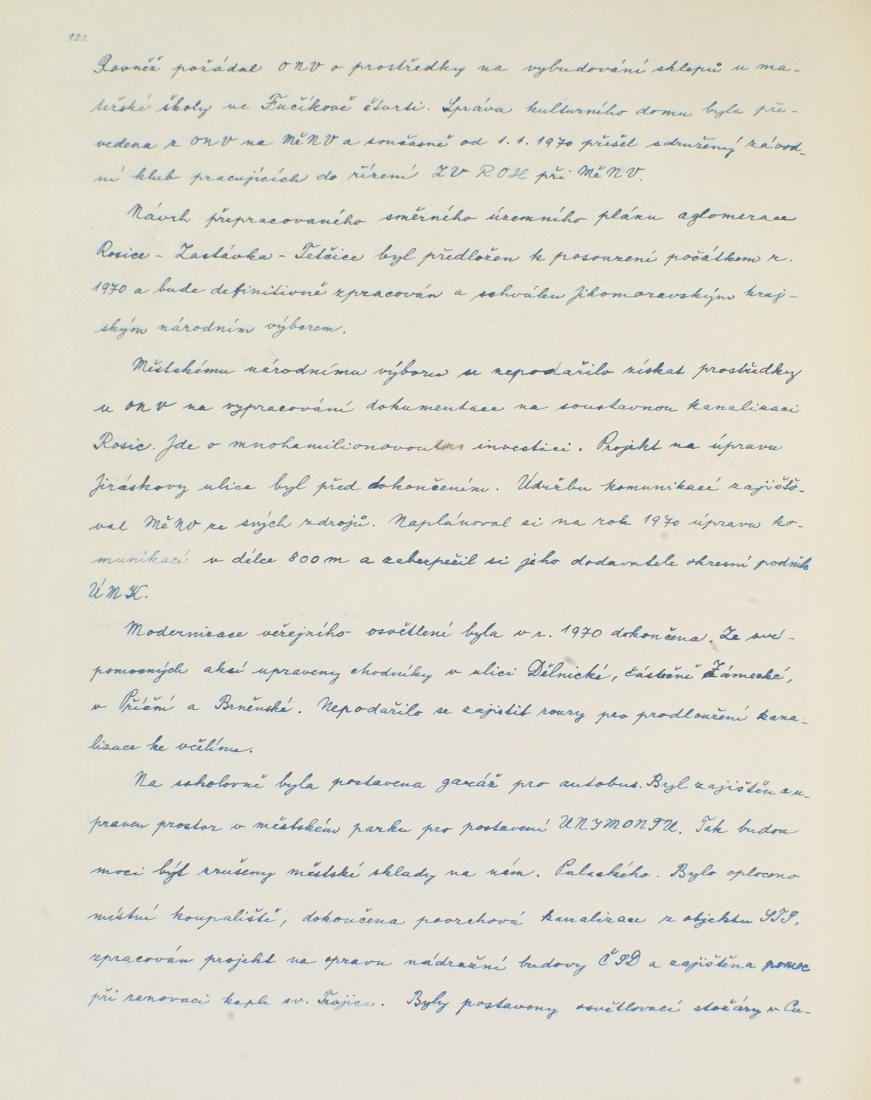 122
Rovněž požádal ONV o prostředky na vybudování sklepů u ma-
teřské školy ve Fučíkově čtvrti. Správa kulturního domu byla pře-
vedena z ONV na MěNV a současně od 1.1.1970 přešel sdružený závod-
ní klub pracujících do řízení ZV ROH při MěNV.
Návrh přepracovaného směrného územního plánu aglomerace
Rosice - Zastávka - Tetčice byl předložen k posouzení počátkem r.
1970 a bude definitivně zpracován a schválen Jihomoravským kraj-
ským národním výborem.
Městskému národnímu výboru se nepodařilo získat prostředky
u ONV na vypracování dokumentace na soustavnou kanalizaci
Rosic. Jde o mnohamilionovou investici. Projekt na úpravu
Jiráskovy ulice byl před dokončením. Údržbu komunikací zajišťo-
val MěNV ze svých zdrojů. Naplánoval si na rok 1970 úpravu ko-
munikací v délce 800 m a zabezpečil si jeho dodavatele okresní podnik
ÚNK.
Modernizace veřejného osvětlení byla v r. 1970 dokončena. Ze své-
pomocných akcí upraveny chodníky v ulici Dělnické, částečně Zámecké,
v Příční a Brněnské. Nepodařilo se zajistit roury pro prodloužení kana-
lizace ke včelínu.
Na sokolovně byla postavena garáž pro autobus. Byl zajištěn a u-
praven prostor v městském parku pro postavení UNYMONTU. Tak budou
moci být zrušeny městské sklady na nám. Palackého. Bylo oploceno
místní koupaliště, dokončena povrchová kanalizace z objektu STS,
zpracován projekt na opravu nádražní budovy ČSD a zajištěna pomoc
při renovaci kaple sv. Trojice. Byly postaveny osvětlovací stožáry v Cu-